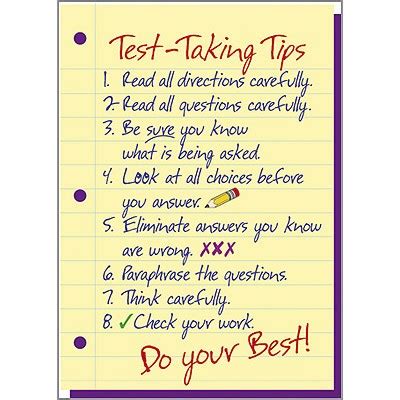 Test-Taking Tips
1. Read all directions carefully.
2. Read all questions carefully.
3. Be sure you know
what is being asked.
4. Look at all choices before
you answer.
5. Eliminate answers you know
are wrong. XXX
6. Paraphrase the questions.
7. Think carefully.
8. ✓Check your work.
Do your Best!